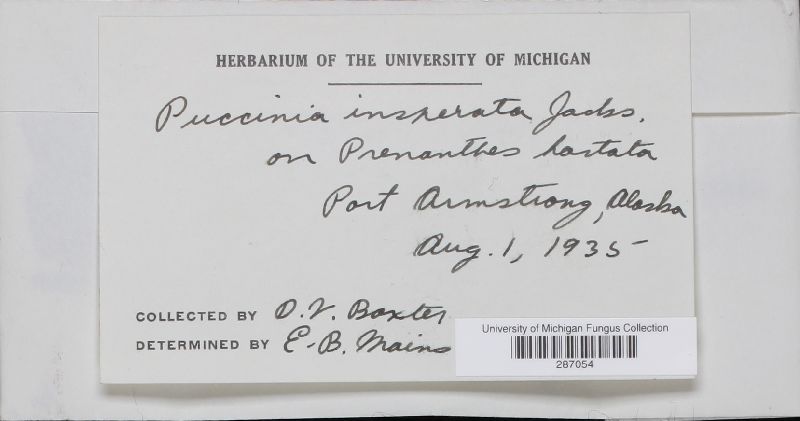 HERBARIUM OF THE UNIVERSITY OF MICHIGAN
Puccinia insperata Jacks.
on Prenanthes hastata
Port Armstrong, Alaska
Aug. 1, 1935
COLLECTED BY D.V. Baxter
DETERMINED BY E.B. Mains
University of Michigan Fungus Collection
287054